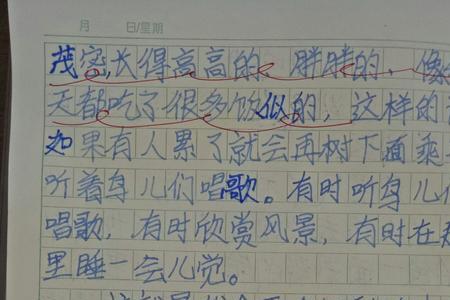 月 日/星期
茂密,长得高高的、胖胖的,像
天都吃了很多饭似的,这样的
如果有人累了就会再树下面乘
听着鸟儿们唱歌。有时听鸟儿
唱歌,有时欣赏风景,有时在
里睡一会儿觉。